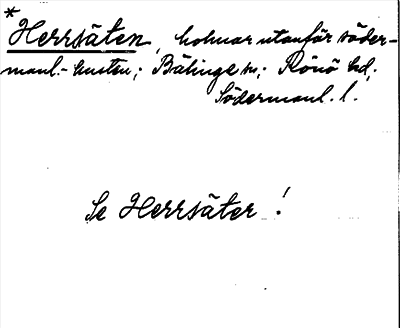 *
Herrsäten, holmar utanför söder-
manl.-kusten; Bälinge sn; Rönö hd;
Södermanl. l.
Se Herrsäter!